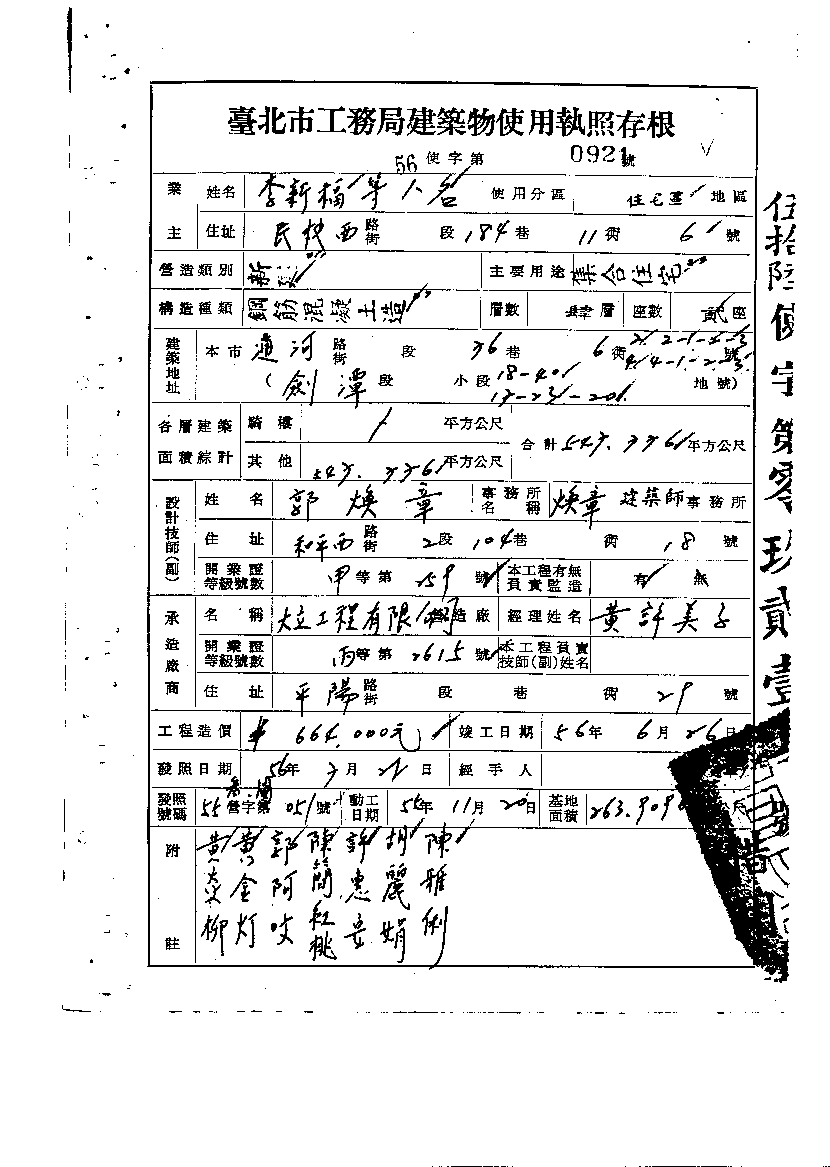 臺北市工務局建築物使用執照存根
56 使字第 0921 號
業主 姓名 李新福等八名 使用分區 住宅區 地區
住址 民族西 路街 段 184 巷 11 衖 6 號
營造類別 新建 主要用途 集合住宅
構造種類 鋼筋混凝土造 層數 肆 層 座數 貳 座
建築地址 本市 通河 路街 段 36 巷 6 衖 號
(劍潭 段 小段 18-40 地號)
13-23-20
各層建築面積綜計 騎樓 平方公尺 合計 543.336 平方公尺
其他 543.336 平方公尺
設計技師(副) 姓名 郭煥章 事務所名稱 煥章建築師事務所
住址 和平西 路街 2 段 104 巷 衖 18 號
開業證等級號數 甲 等第 259 號 本工程有無負責監造 有 無
承造廠商 名稱 大立工程有限公司 營造廠 經理姓名 黃許美子
開業證等級號數 丙 等第 2615 號 本工程負責技師(副)姓名
住址 平陽 路街 段 巷 衖 29 號
工程造價 664,000元 竣工日期 56年 6月 26日
發照日期 56年 月 日 經手人
發照號碼 55 營字第 051 號 動工日期 55年 11月 20日 基地面積 263.909
附註
陳雅俐
胡麗娟
許惠
陳簡紅桃
郭阿
黃金灯
黃 柳
伍拾陸使字第零玖貳壹